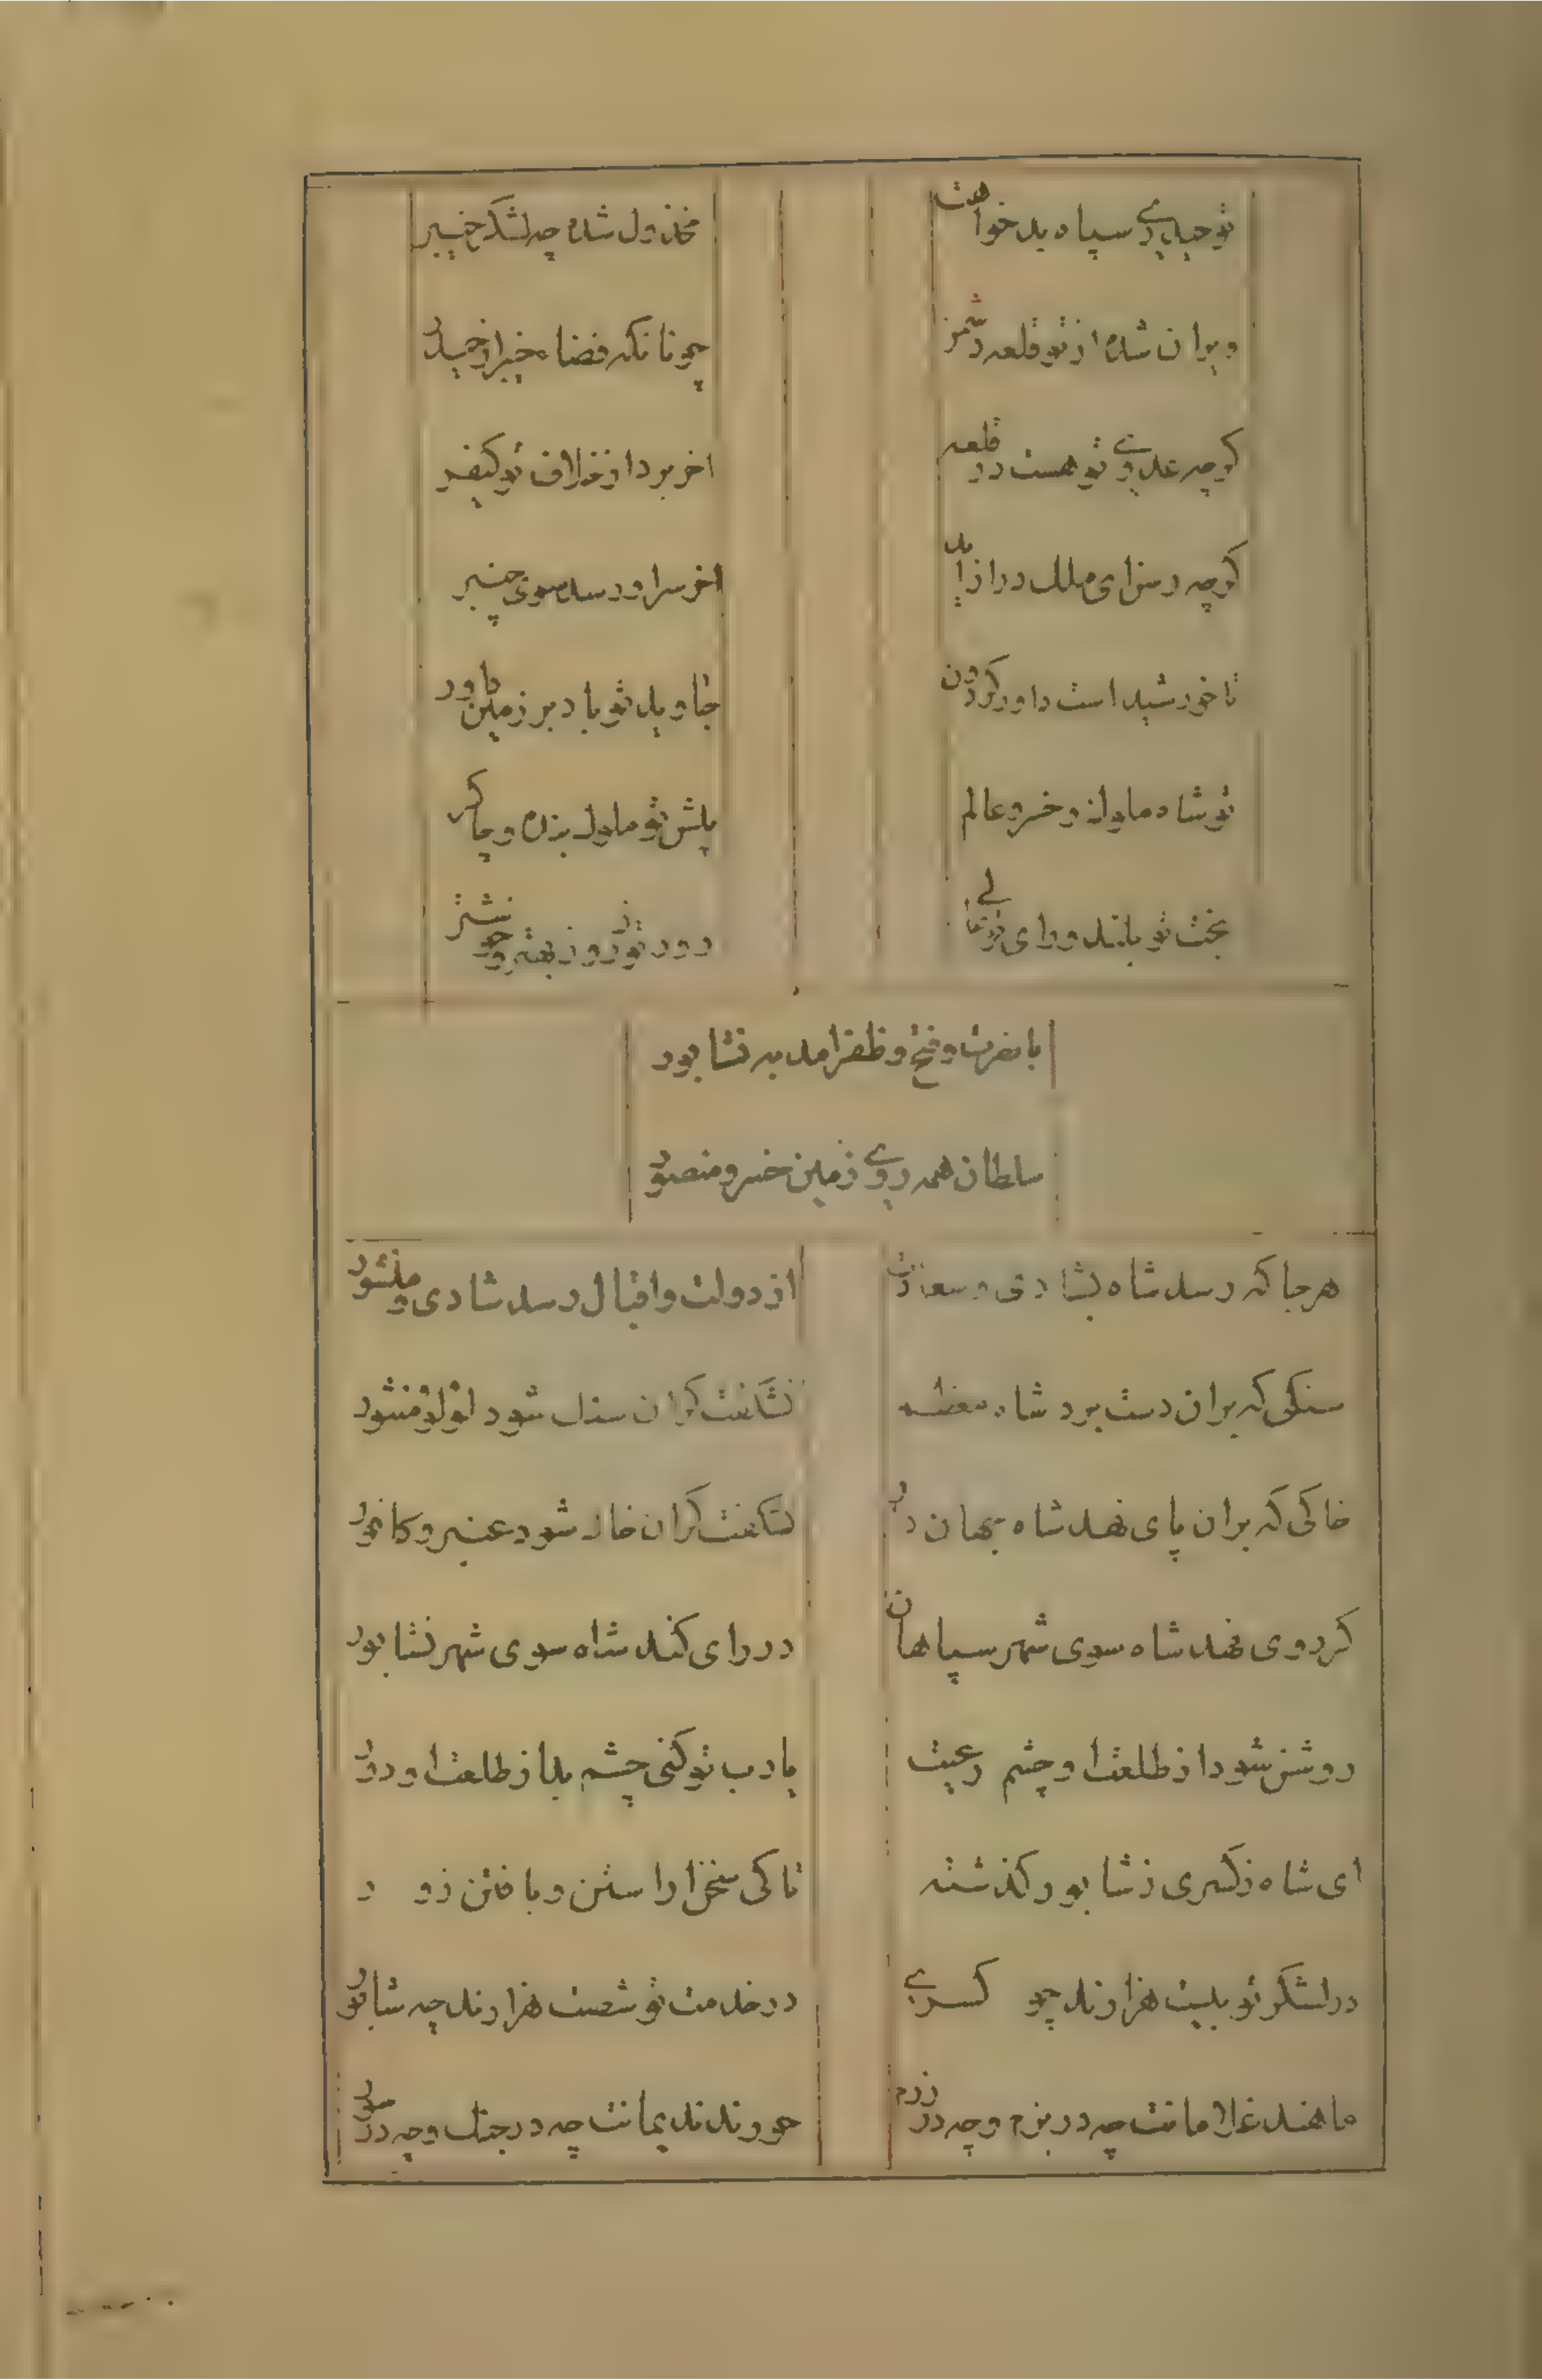 تو حیدری سپاه بدخواهت
مخذول شده چه لشکر خیبر
ویران شده از تو قلعه دشمن
چونانکه فضا خیبر از حیدر
کرچه عدوی تو هست در قلعه
اخر برد از خلاف تو کیفر
کرچه رسنزای ملک دراز اید
اخر سر او رسد سوی چنبر
تا خورشید است داور کردون
جاوید تو باد بر زمین داور
تو شاه معادل و خسرو عالم
پیش تو ملوک بنده و چاکر
بخت تو بلند و رای تو عالی
روز تو ز روز بهتر و خوشتر
با نصرت و فتح و ظفر امد به نشابور
سلطان همه روی زمین خسرو منصور
هرجا که رسد شاه بشادی و سعادت
از دولت و اقبال رسد شادی و منشور
سنکی که بران دست برد شاه معظم
نشکفت کران سنک شود لولو منثور
خاکی که بران پای نهد شاه جهان دار
نشکفت کران خاک شود عنبر و کافور
کر روی نهد شاه سوی شهر سپاهان
ور رای کند شاه سوی شهر نشابور
روشن شود از طلعت او چشم رعیت
یارب تو کنی چشم بد از طلعت او دور
ای شاه ز کسری ز شابور کذشته
تا کی سخن اراستن و بافتن زور
در لشکر تو بیست هزارند چو کسری
در خدمت تو شصت هزارند چه شابور
ماهند غلامانت چه در بزم و چه در رزم
حورند ندیمانت چه در جنک و چه در سور